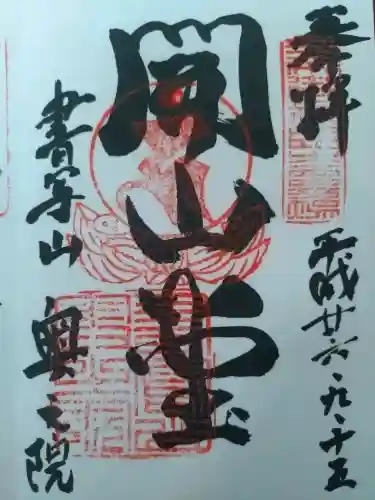 奉拝
平成廿六、九、十五
開山堂
書写山
奥之院